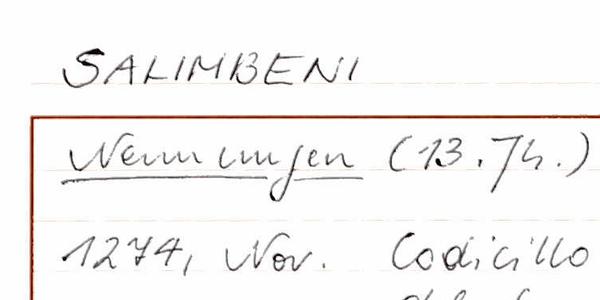 SALIMBENI
Nennungen (13. Jh.)
1274, Nov. Codicillo